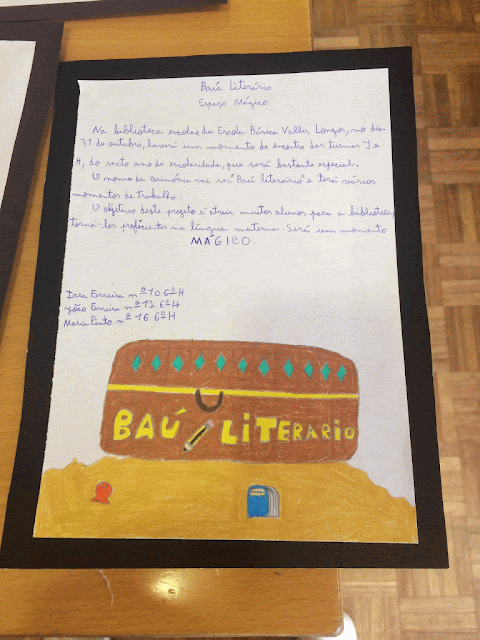 Baú Literário
Espaço Mágico
Na biblioteca escolar da Escola Básica Vallis Longus, no dia
31 de outubro, haverá um momento de encontro das turmas J e
H, do sexto ano de escolaridade, que será bastante especial.
O nome da cerimónia vai ser "Baú literário" e terá vários
momentos de trabalho.
O objetivo deste projeto é atrair muitos alunos para a biblioteca,
torná-los proficientes na língua materna. Será um momento
MÁGICO.
Dara Ferreira nº 10 6º H
João Ferreira nº 12 6º H
Maria Pinto nº 16 6º H
BAÚ LITERARIO